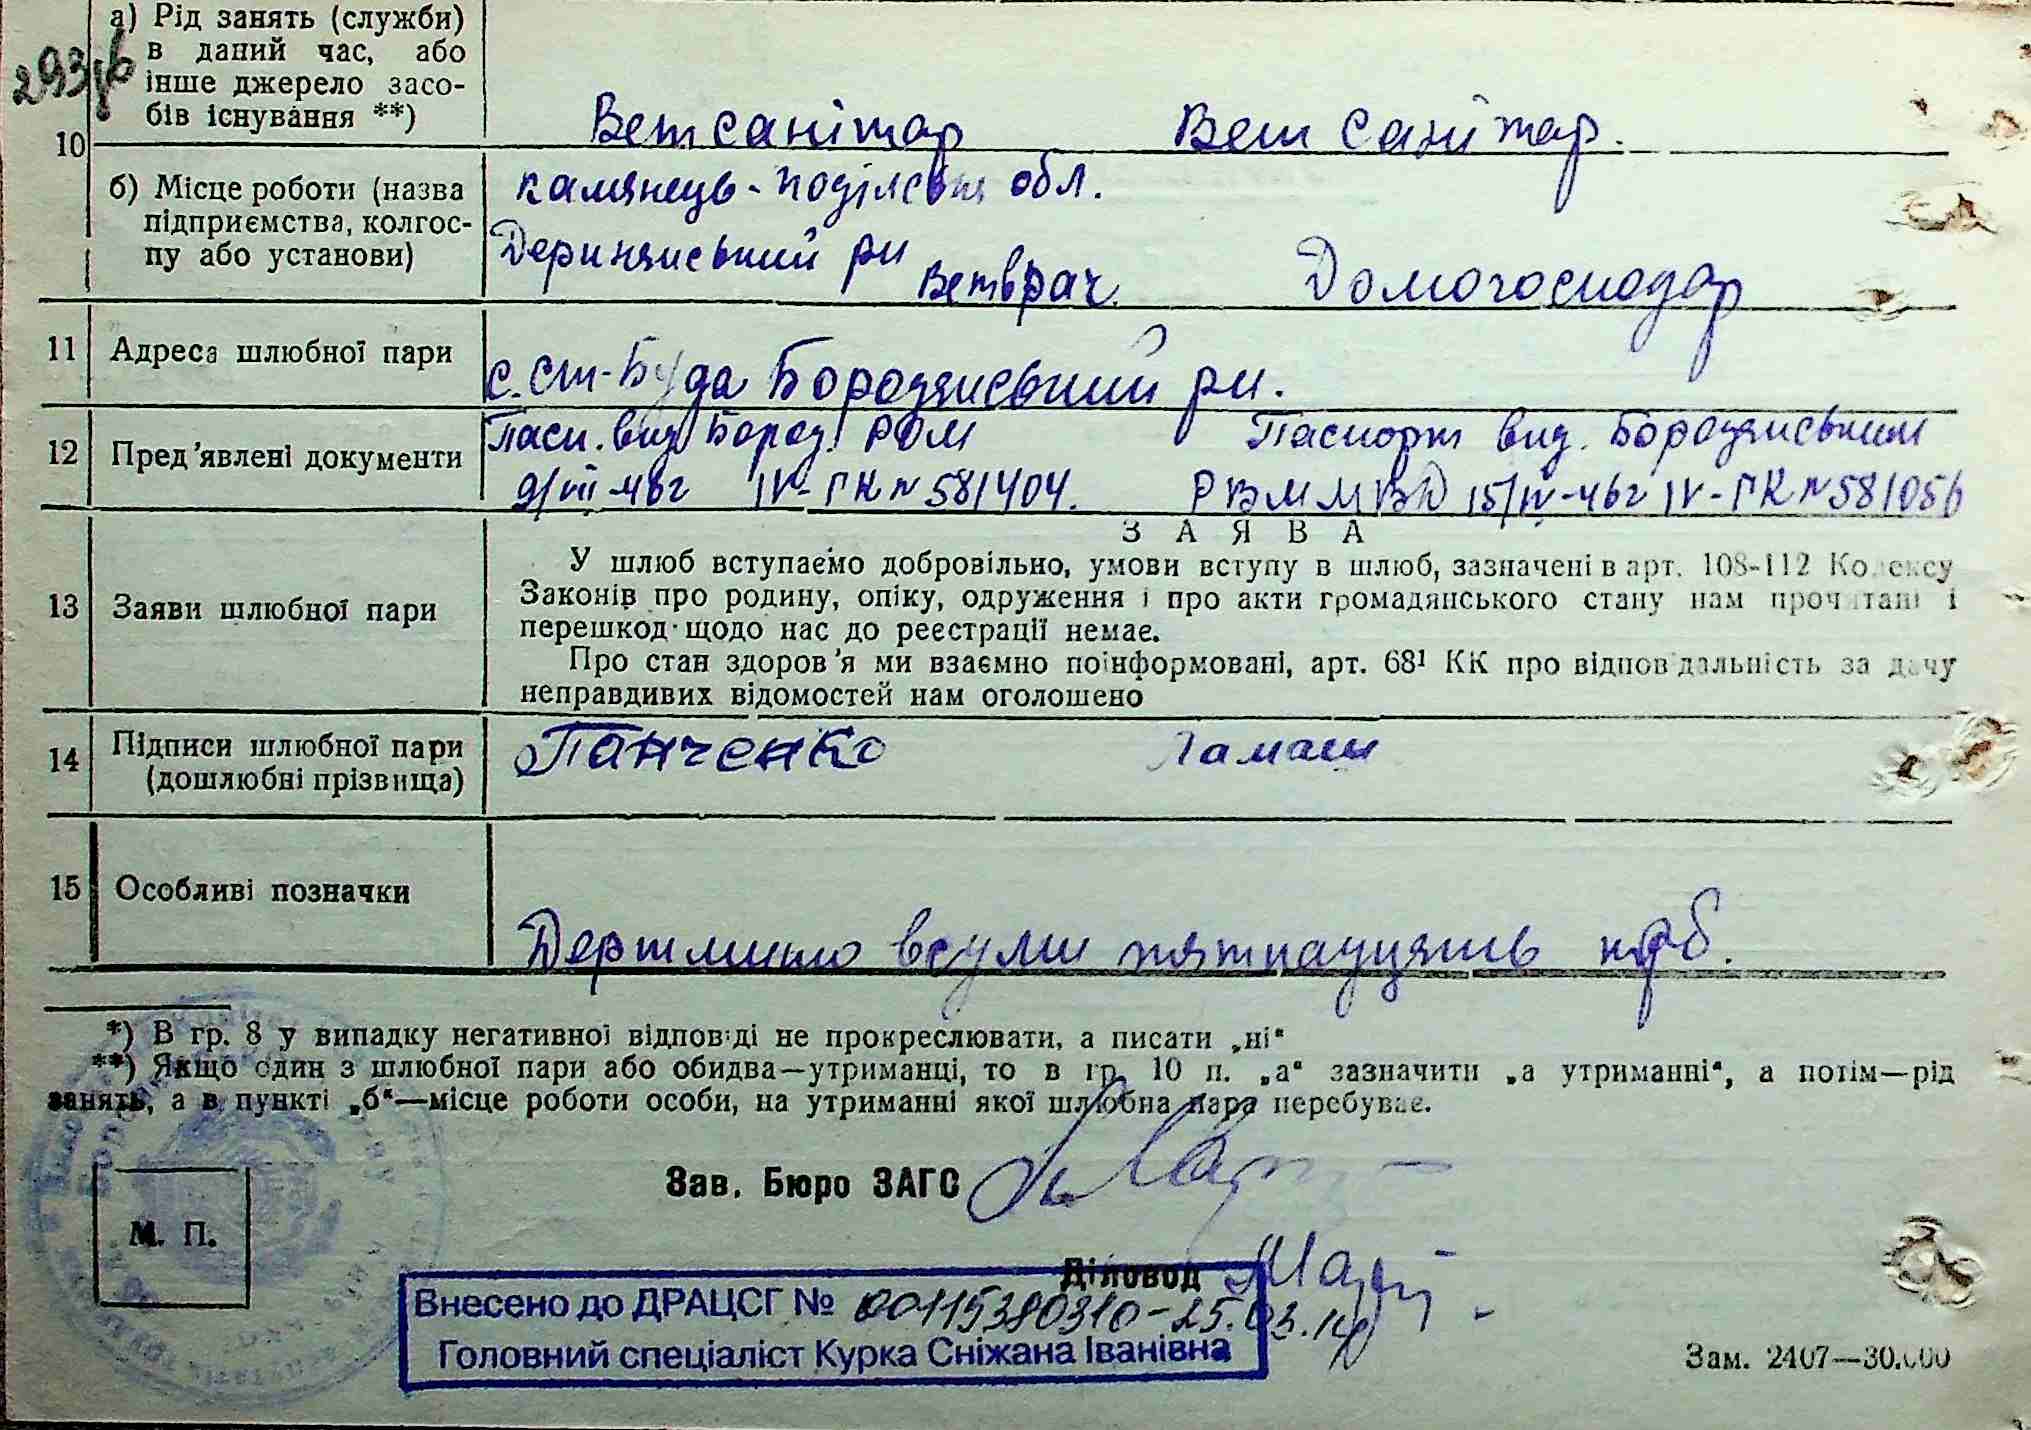 293зв
а) Рід занять (служби)
в даний час, або
інше джерело засо-
бів існування **)
Ветсанітар Вет санітар.
10
б) Місце роботи (назва
підприємства, колгос-
пу або установи)
Камянець-Поділськ обл.
Деринянський рн
Ветврач. Домогосподар
11 Адреса шлюбної пари
с. Ст-Буда Бородянський рн.
12 Пред'явлені документи
Пасп. вид Бород. РОМ Паспорт вид. Бородянським
9/VII 46г IV-ГК № 581404. РВМ МВД 15/IV-46г IV-ГК № 581056
З А Я В А
13 Заяви шлюбної пари
У шлюб вступаємо добровільно, умови вступу в шлюб, зазначені в арт. 108-112 Кодексу
Законів про родину, опіку, одруження і про акти громадянського стану нам прочитані і
перешкод щодо нас до реєстрації немає.
Про стан здоров'я ми взаємно поінформовані, арт. 68¹ КК про відповідальність за дачу
неправдивих відомостей нам оголошено
14 Підписи шлюбної пари
(дошлюбні прізвища)
Панченко Ламаш
15 Особливі позначки
Держмито всуми пятнадцять крб.
*) В гр. 8 у випадку негативної відповіді не прокреслювати, а писати „ні"
**) Якщо один з шлюбної пари або обидва—утриманці, то в гр. 10 п. „а" зазначити „а утриманні", а потім—рід
занять, а в пункті „б"—місце роботи особи, на утриманні якої шлюбна пара перебуває.
Зав. Бюро ЗАГС
М. П.
Діловод
Внесено до ДРАЦСГ № 00115380310-25.03.14
Головний спеціаліст Курка Сніжана Іванівна
Зам. 2407—30.000